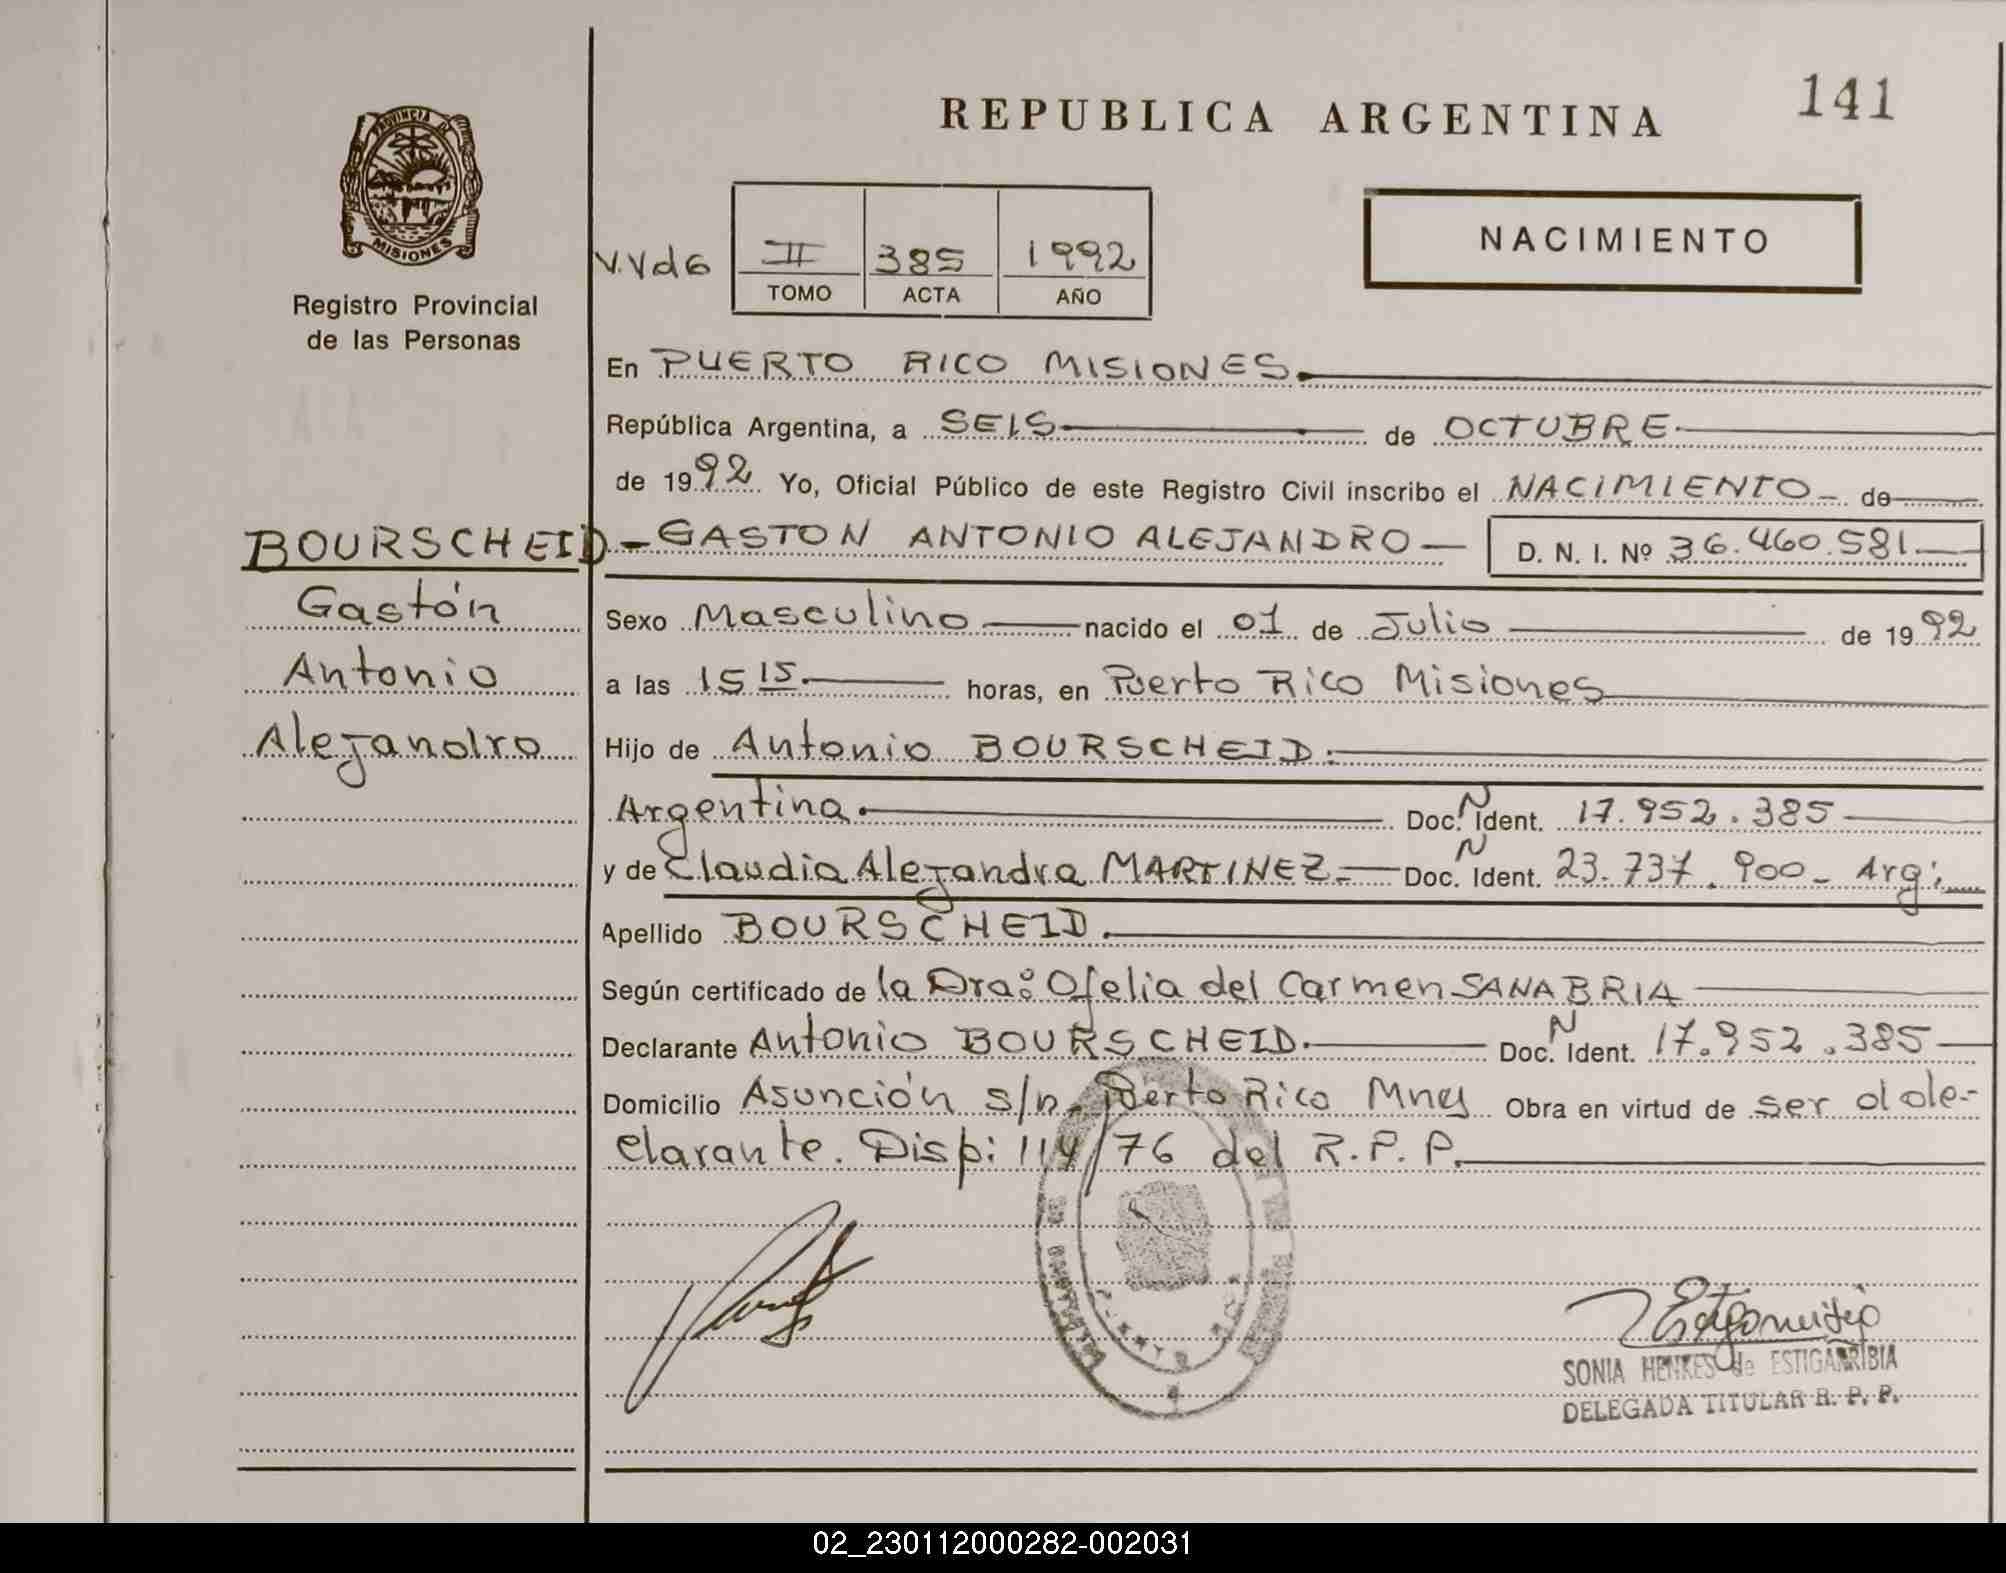 REPUBLICA ARGENTINA
141
PROVINCIA DE
MISIONES
Registro Provincial
de las Personas
V.V d6
II 385 1992
TOMO ACTA AÑO
NACIMIENTO
En PUERTO RICO MISIONES.
República Argentina, a SEIS de OCTUBRE
de 1992 Yo, Oficial Público de este Registro Civil inscribo el NACIMIENTO de
BOURSCHEID - GASTON ANTONIO ALEJANDRO D. N. I. Nº 36.460.581
Gastón
Antonio
Alejandro
Sexo Masculino nacido el 01 de Julio de 1992
a las 15 15 horas, en Puerto Rico Misiones
Hijo de Antonio BOURSCHEID.
Argentina. Doc. N Ident. 17.952.385
y de Claudia Alejandra MARTINEZ.- Doc. N Ident. 23.737.900- Arg:
Apellido BOURSCHEID.
Según certificado de la Dra: Ofelia del Carmen SANABRIA
Declarante Antonio BOURSCHEID. Doc. N Ident. 17.952.385
Domicilio Asunción s/n. Puerto Rico Mnes Obra en virtud de ser el de-
clarante. Disp: 114/76 del R.P.P.
SONIA HENKES de ESTIGARRIBIA
DELEGADA TITULAR R. P. P.
02_230112000282-002031